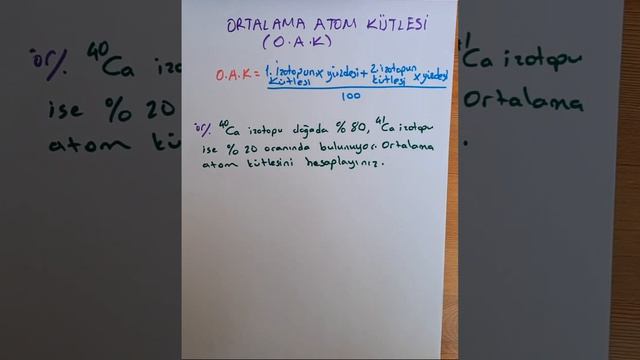 ORTALAMA ATOM KÜTLESİ
(O.A.K)
O.A.K = 1. izotopun kütlesi x yüzdesi + 2. izotopun kütlesi x yüzdesi
100
ör/. ⁴⁰Ca izotopu doğada % 80, ⁴¹Ca izotopu
ise % 20 oranında bulunuyor. Ortalama
atom kütlesini hesaplayınız.